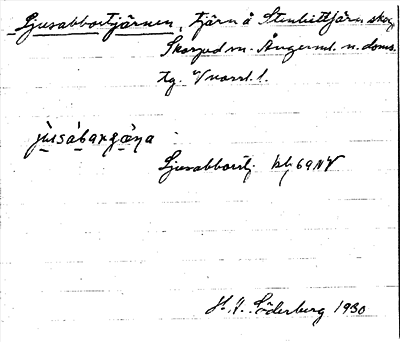 Ljusabbortjärnen, tjärn å Stenbittjärn skog,
Skorped sn. Ångerml. n. doms.
tg. V norrl. l.
jùsábarʂæ̀na
Ljusabbortj. bl. 69 NV
H. V. Söderberg 1930